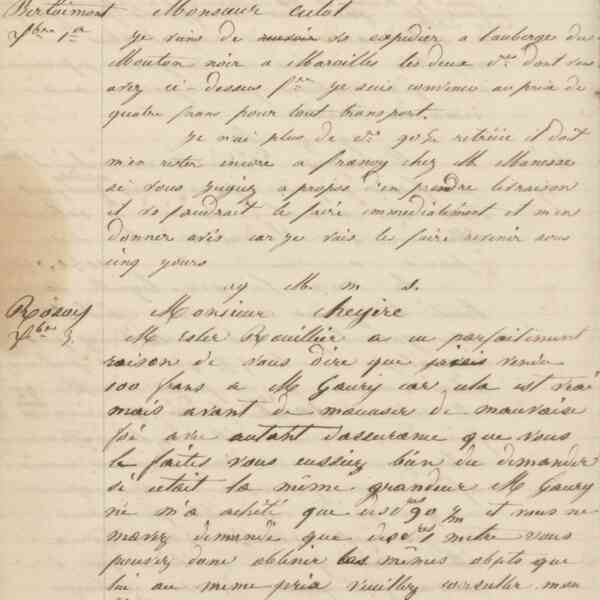 Bertaimont Monsieur Culot
Xbre 1er Je viens de vs expedier a l'auberge du
Mouton noir a Maroilles les deux dont vous
avez ci-dessus fre je suis convenu au prix de
quatre frans pour tout transport.
Je n'ai plus de 90 retrécie il doit
m'en rester encore a chez M.
si vous jugiez a propos d'en prendre livraison
il vs faudrait le faire immédiatement et m'en
donner avis car je vais les faire revenir sous
cinq yours
M. m s.
Rozoy Monsieur Cheyère
Xbre 3. M Ester Rouillier a eu parfaitement
raison de vous dire que vendu
100 frans a M Gaury car cela est vrai
mais avant de m'acuser de mauvaise
foi avec autant d'assurance que vous
le faites vous eussiez bien du demander
si c'etait la même grandeur M Gaury
ne m'a achêté que 90 et vous ne
m'avez demandé que 1 metre vous
pouvez donc obtenir les mêmes objets que
lui au meme prix veuillez consulter mon